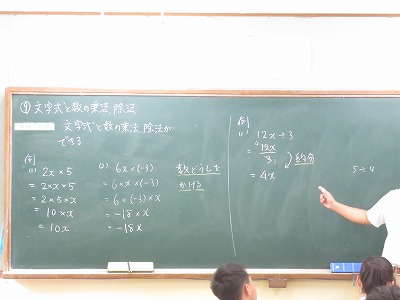 ⑨ 文字式と数の乗法、除法
文字式と数の乗法、除法が
できる
例
(1) 2x×5
= 2×x×5
= 2×5×x
= 10×x
= 10x
(2) 6x×(-3)
= 6×x×(-3)
= 6×(-3)×x
= -18×x
= -18x
数どうしを
かける
例
(1) 12x÷3
= 12x/3
約分
= 4x
5÷4